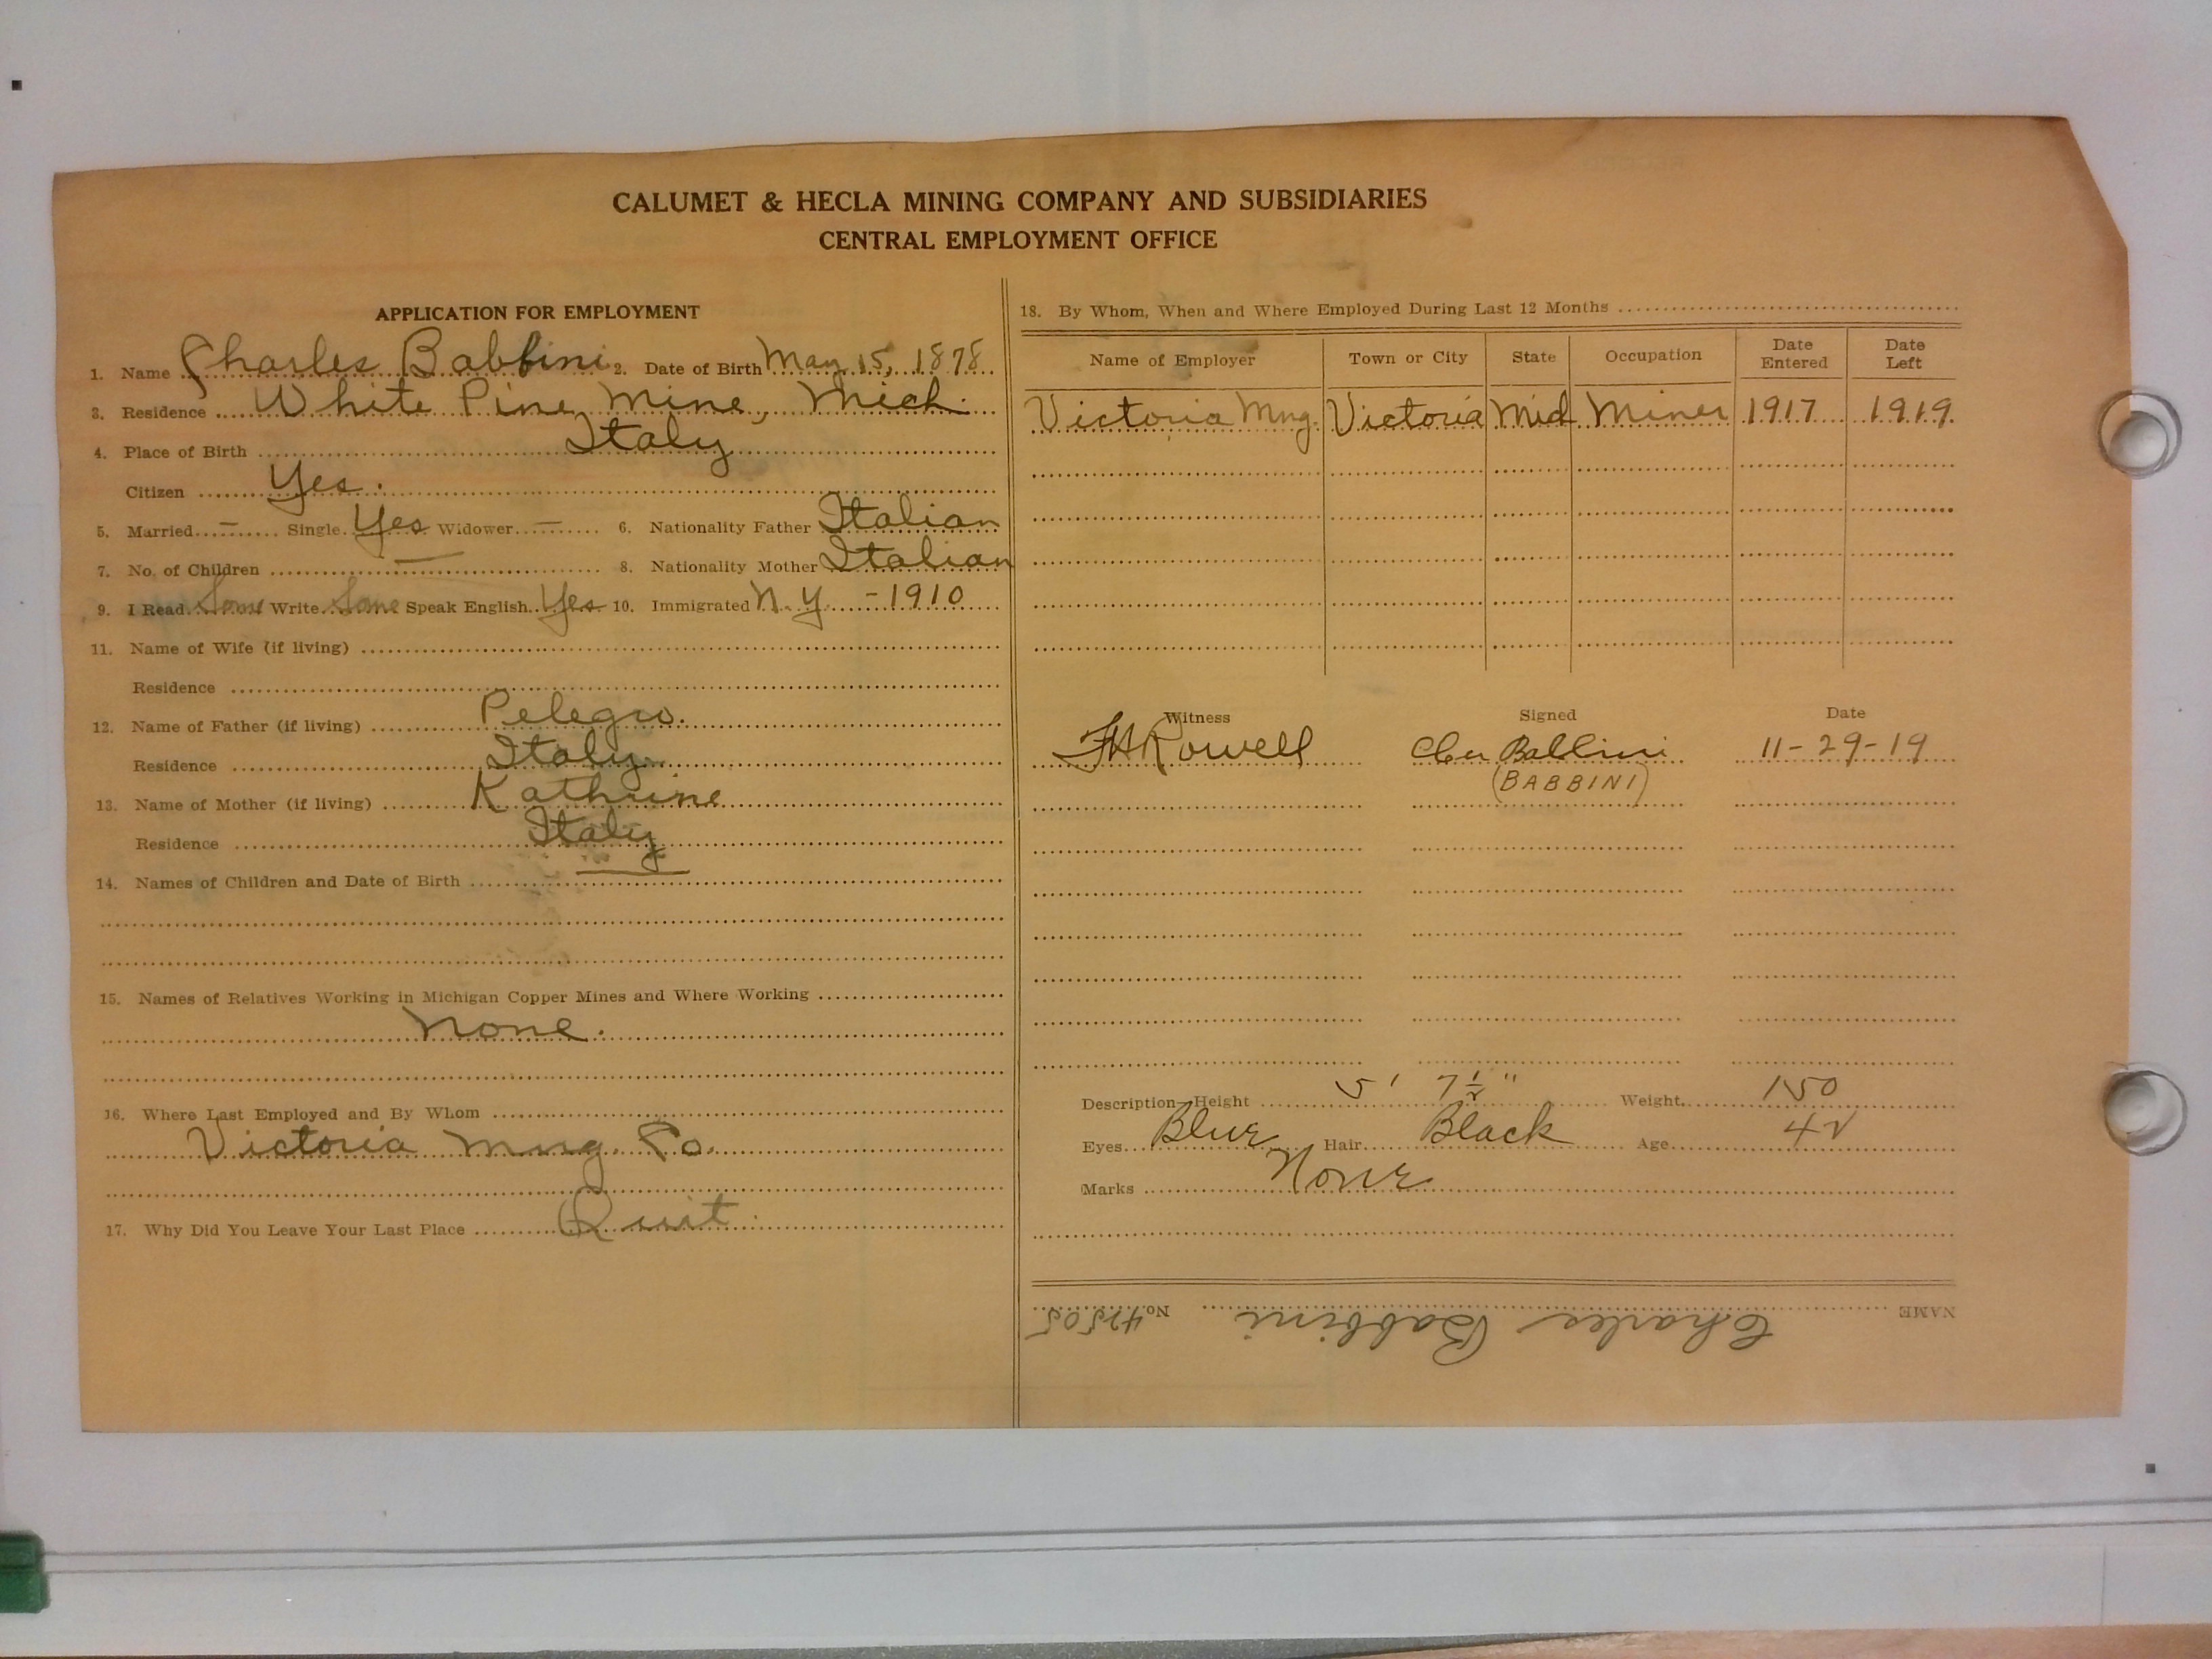 CALUMET & HECLA MINING COMPANY AND SUBSIDIARIES
CENTRAL EMPLOYMENT OFFICE
APPLICATION FOR EMPLOYMENT
1. Name Charles Babbini 2. Date of Birth May 15, 1878
3. Residence White Pine Mine, Mich.
4. Place of Birth Italy
Citizen Yes.
5. Married – Single Yes Widower – 6. Nationality Father Italian
7. No. of Children — 8. Nationality Mother Italian
9. I Read Some Write Some Speak English Yes 10. Immigrated N.Y. - 1910
11. Name of Wife (if living)
Residence
12. Name of Father (if living) Pelegro.
Residence Italy
13. Name of Mother (if living) Kathrine
Residence Italy
14. Names of Children and Date of Birth —
15. Names of Relatives Working in Michigan Copper Mines and Where Working
None.
16. Where Last Employed and By Whom
Victoria Mng. Co.
17. Why Did You Leave Your Last Place Quit
18. By Whom, When and Where Employed During Last 12 Months
Name of Employer Town or City State Occupation Date Entered Date Left
Victoria Mng. Victoria Miner 1917 1919
Witness Signed Date
Rowell Babbini 11-29-19
(BABBINI)
Description—Height 5' 7½" Weight 150
Eyes Blue Hair Black Age 42
Marks None
NAME Charles Babbini No. 42505